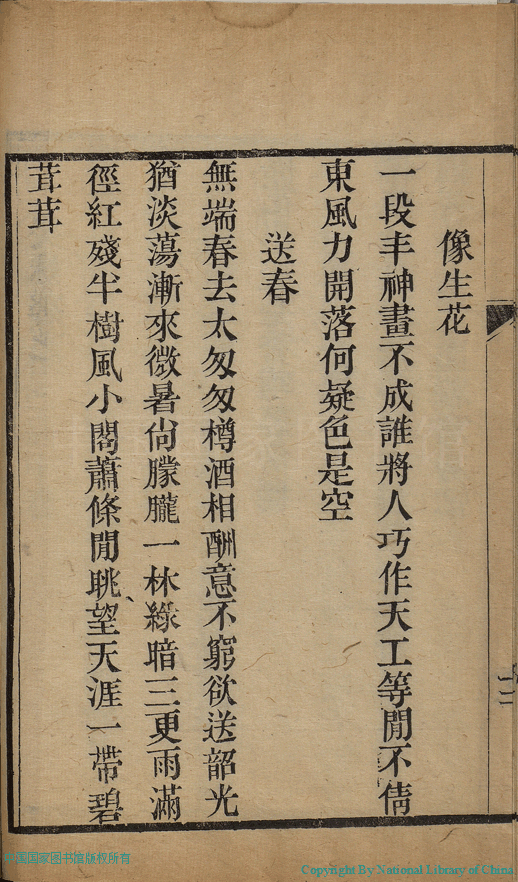 像生花
一段丰神畫不成誰將人巧作天工等閒不倩
東風力開落何疑色是空
送春
無端春去太匆匆樽酒相酬意不窮欲送韶光
猶淡蕩漸來微暑尙朦朧一林綠暗三更雨滿
徑紅殘半樹風小閣蕭條閒眺望天涯一帶碧
茸茸
中国国家图书馆版权所有
Copyright By National Library of China